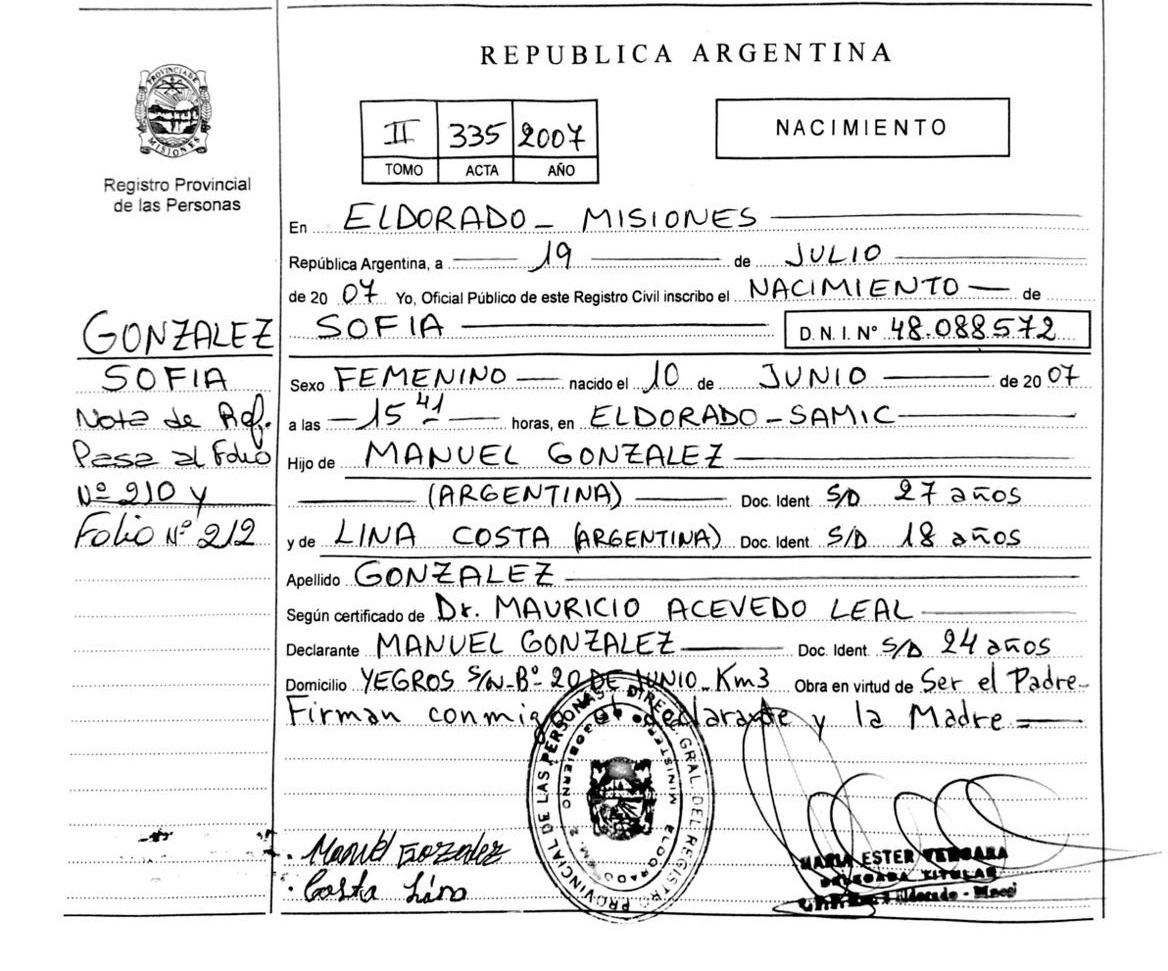 REPUBLICA ARGENTINA
PROVINCIA DE MISIONES
Registro Provincial
de las Personas
II 335 2007
TOMO ACTA AÑO
NACIMIENTO
En ELDORADO - MISIONES
República Argentina, a 19 de JULIO
de 20 07 Yo, Oficial Público de este Registro Civil inscribo el NACIMIENTO de
SOFIA D. N. I. Nº 48.088.572
Sexo FEMENINO nacido el 10 de JUNIO de 20 07
a las 15 41 horas, en ELDORADO - SAMIC
Hijo de MANUEL GONZALEZ
(ARGENTINA) Doc. Ident S/D 27 años
y de LINA COSTA (ARGENTINA) Doc. Ident S/D 18 años
Apellido GONZALEZ
Según certificado de Dr. MAURICIO ACEVEDO LEAL
Declarante MANUEL GONZALEZ Doc. Ident S/D 24 años
Domicilio YEGROS S/N - Bº - 20 DE JUNIO - Km 3 Obra en virtud de Ser el Padre-
Firman conmigo el declarante y la Madre =
GONZALEZ
SOFIA
Nota de Ref.
Pasa al Folio
Nº 210 y
Folio Nº 212
Manuel Gozalez
Costa Lina
DIREC. GRAL. DEL REGISTRO PROVINCIAL DE LAS PERSONAS
MINISTERIO GOBIERNO
ELDORADO
MARIA ESTER VERGARA
DELEGADA TITULAR
Eldorado - Mnes